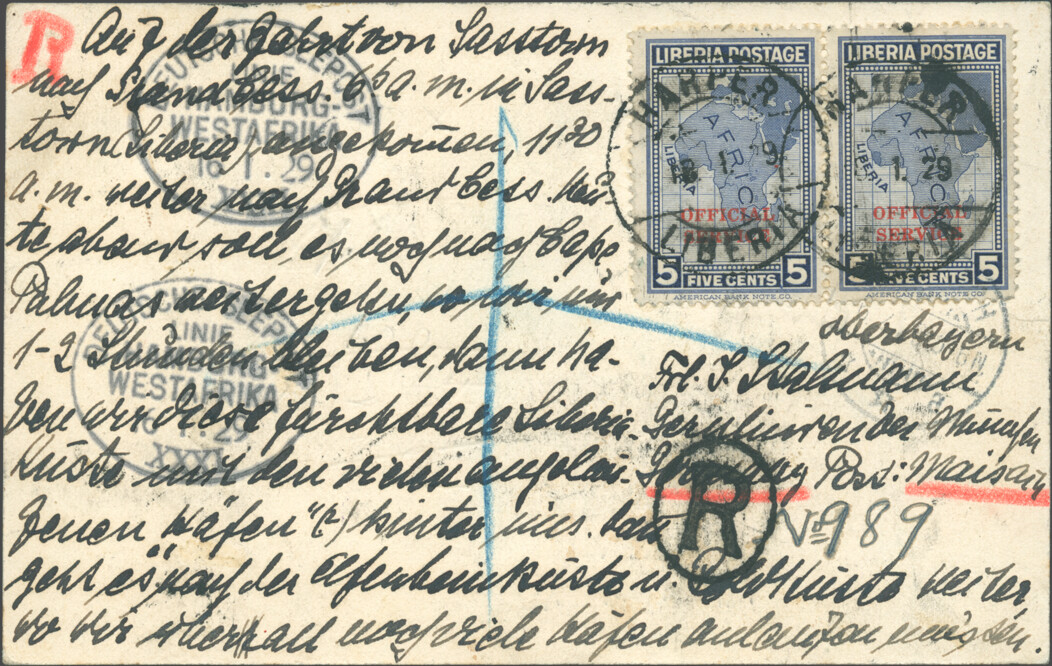 R
Auf der Fahrt von Sasstown
nach Grand Cess. 6 30 a.m. in Sass-
town (Liberia) angekommen, 11 30
a.m. weiter nach Grand Cess. Heu-
te abend soll es noch nach Cape
Palmas weitergehn, wo wir nur
1-2 Stunden bleiben, dann ha-
ben wir diese furchtbare Liberia-
küste mit den vielen
"Häfen" (?) hinter uns. Dann
geht es nach der Elfenbeinküste u. Goldküste weiter
wo wir überall noch viele Häfen anlaufen müssen.
DEUTSCHE SEEPOST
LINIE
HAMBURG
WESTAFRIKA
16.1.29
XXXI
DEUTSCHE SEEPOST
LINIE
HAMBURG
WESTAFRIKA
1.29
XXXI
LIBERIA POSTAGE
AFRICA
LIBERIA
OFFICIAL
SERVICE
5 FIVE CENTS 5
AMERICAN BANK NOTE CO.
LIBERIA POSTAGE
AFRICA
LIBERIA
OFFICIAL
SERVICE
5 FIVE CENTS 5
AMERICAN BANK NOTE CO.
HARPER
1.29
LIBERIA
HARPER
1.29
LIBERIA
Oberbayern
Frl. I.
Germany Post:
R
No 989